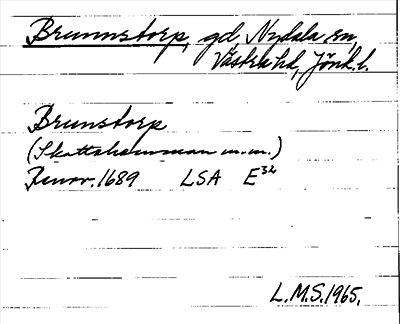 Brunnstorp, gd, Nydala sn,
Västra hd, Jönk. l.
Brunstorp
(Skattehemman m.m.)
Renov. 1689 LSA E³²
L.M.S. 1965.